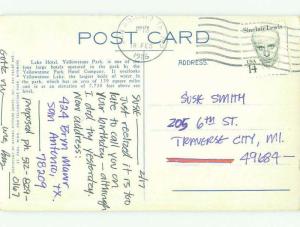 POST CARD
Lake Hotel, Yellowstone Park, is one of the
two large hotels operated in the park by the
Yellowstone Park Hotel Company. It overlooks
Yellowstone Lake the largest body of water in
the park, which has an area of 139 square miles
and is at an elevation of 7,730 feet above sea
ADDRESS
PM
19 FEB
1986
Sinclair Lewis
USA
14
2/17
SUSIE -
Just realized it is too
late to call you on
your birthday - although
I did try yesterday.
New address:
424 Bryn Mawr
San Antonio, TX.
78209
ph. 512-829-
0167
Gotta run
Love,
SUSIE SMITH
205 6th ST.
TRAVERSE CITY, MI.
49684-